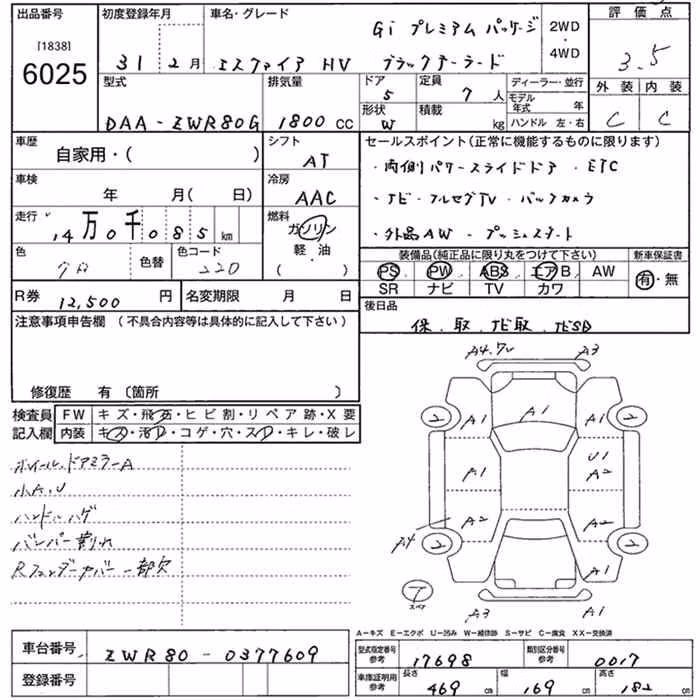 出品番号 初度登録年月 車名・グレード Gi プレミアム パッケージ 2WD・4WD 評価点
[1838]
6025 31年 2月 エスクァイア HV ブラックテーラード 3.5
型式 排気量 ドア 5 定員 7人 ディーラー・並行 外装 内装
DAA-ZWR80G 1800 CC 形状 W 積載 kg モデル年式 年 ハンドル 左・右 C C
車歴 シフト セールスポイント (正常に機能するものに限ります)
自家用・( ) AT ・両側パワースライドドア ・ETC
車検 冷房
年 月 (日) AAC ・ナビ・フルセグTV・バックカメラ
走行 燃料
14万0千085 km ガソリン 軽・油 ( ) ・外品AW・プッシュスタート
色 色替 色コード 装備品 (純正品に限り丸をつけて下さい) 新車保証書
クロ 220 PS PW ABS エアB AW 有・無
SR ナビ TV カワ
R券 12,500 円 名変期限 月 日 後日品
注意事項申告欄 (不具合内容等は具体的に記入して下さい) 保、取、ナビ取、ナビSD
修復歴 有 〔箇所 〕
検査員 FW キズ・飛石・ヒビ割・リペア跡・X要
記入欄 内装 キズ・汚レ・コゲ・穴・スレ・キレ・破レ
ホイール、ドアミラーA
小A,U
ハンドルハゲ
バンパー割れ
Rフェンダーカバー一部欠
A3
A1 A1 A1
2 2
A1 U1
A2
A2 A2
A4
2 2
A1
T
スペア
A3 A1
A-キズ E-エクボ U-凹み W-補修跡 S-サビ C-腐食 XX-交換済
車台番号 ZWR80-0377609 型式指定番号 参考 17698 類別区分番号 参考 0017
登録番号 車庫証明用 参考 長さ 469 cm 幅 169 cm 高さ 182 cm